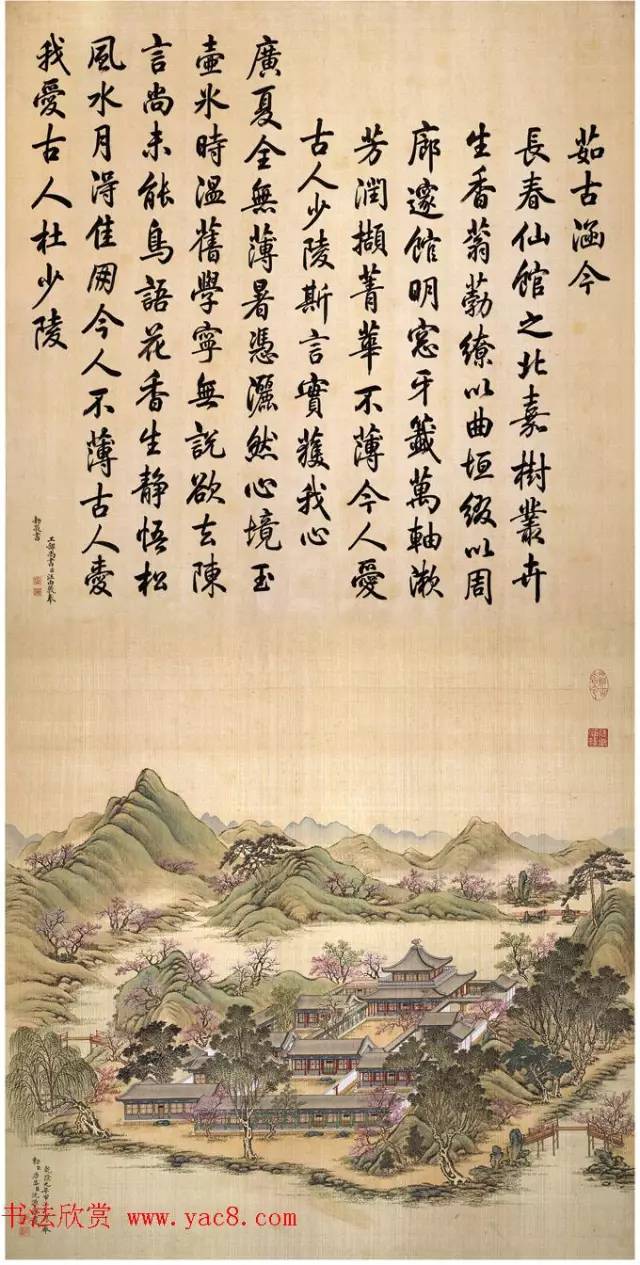 茹古涵今
長春仙館之北嘉樹叢卉
生香蓊葧繚以曲垣綴以周
廊邃館明窓牙籤萬軸漱
芳潤擷菁華不薄今人愛
古人少陵斯言實獲我心
廣夏全無薄暑憑灑然心境玉
壺氷時溫舊學寧無說欲去陳
言尚未能鳥語花香生静悟松
風水月淂佳朋今人不薄古人愛
我愛古人杜少陵
工部尚書臣汪由敦奉
勅敬書
书法欣赏 www.yac8.com